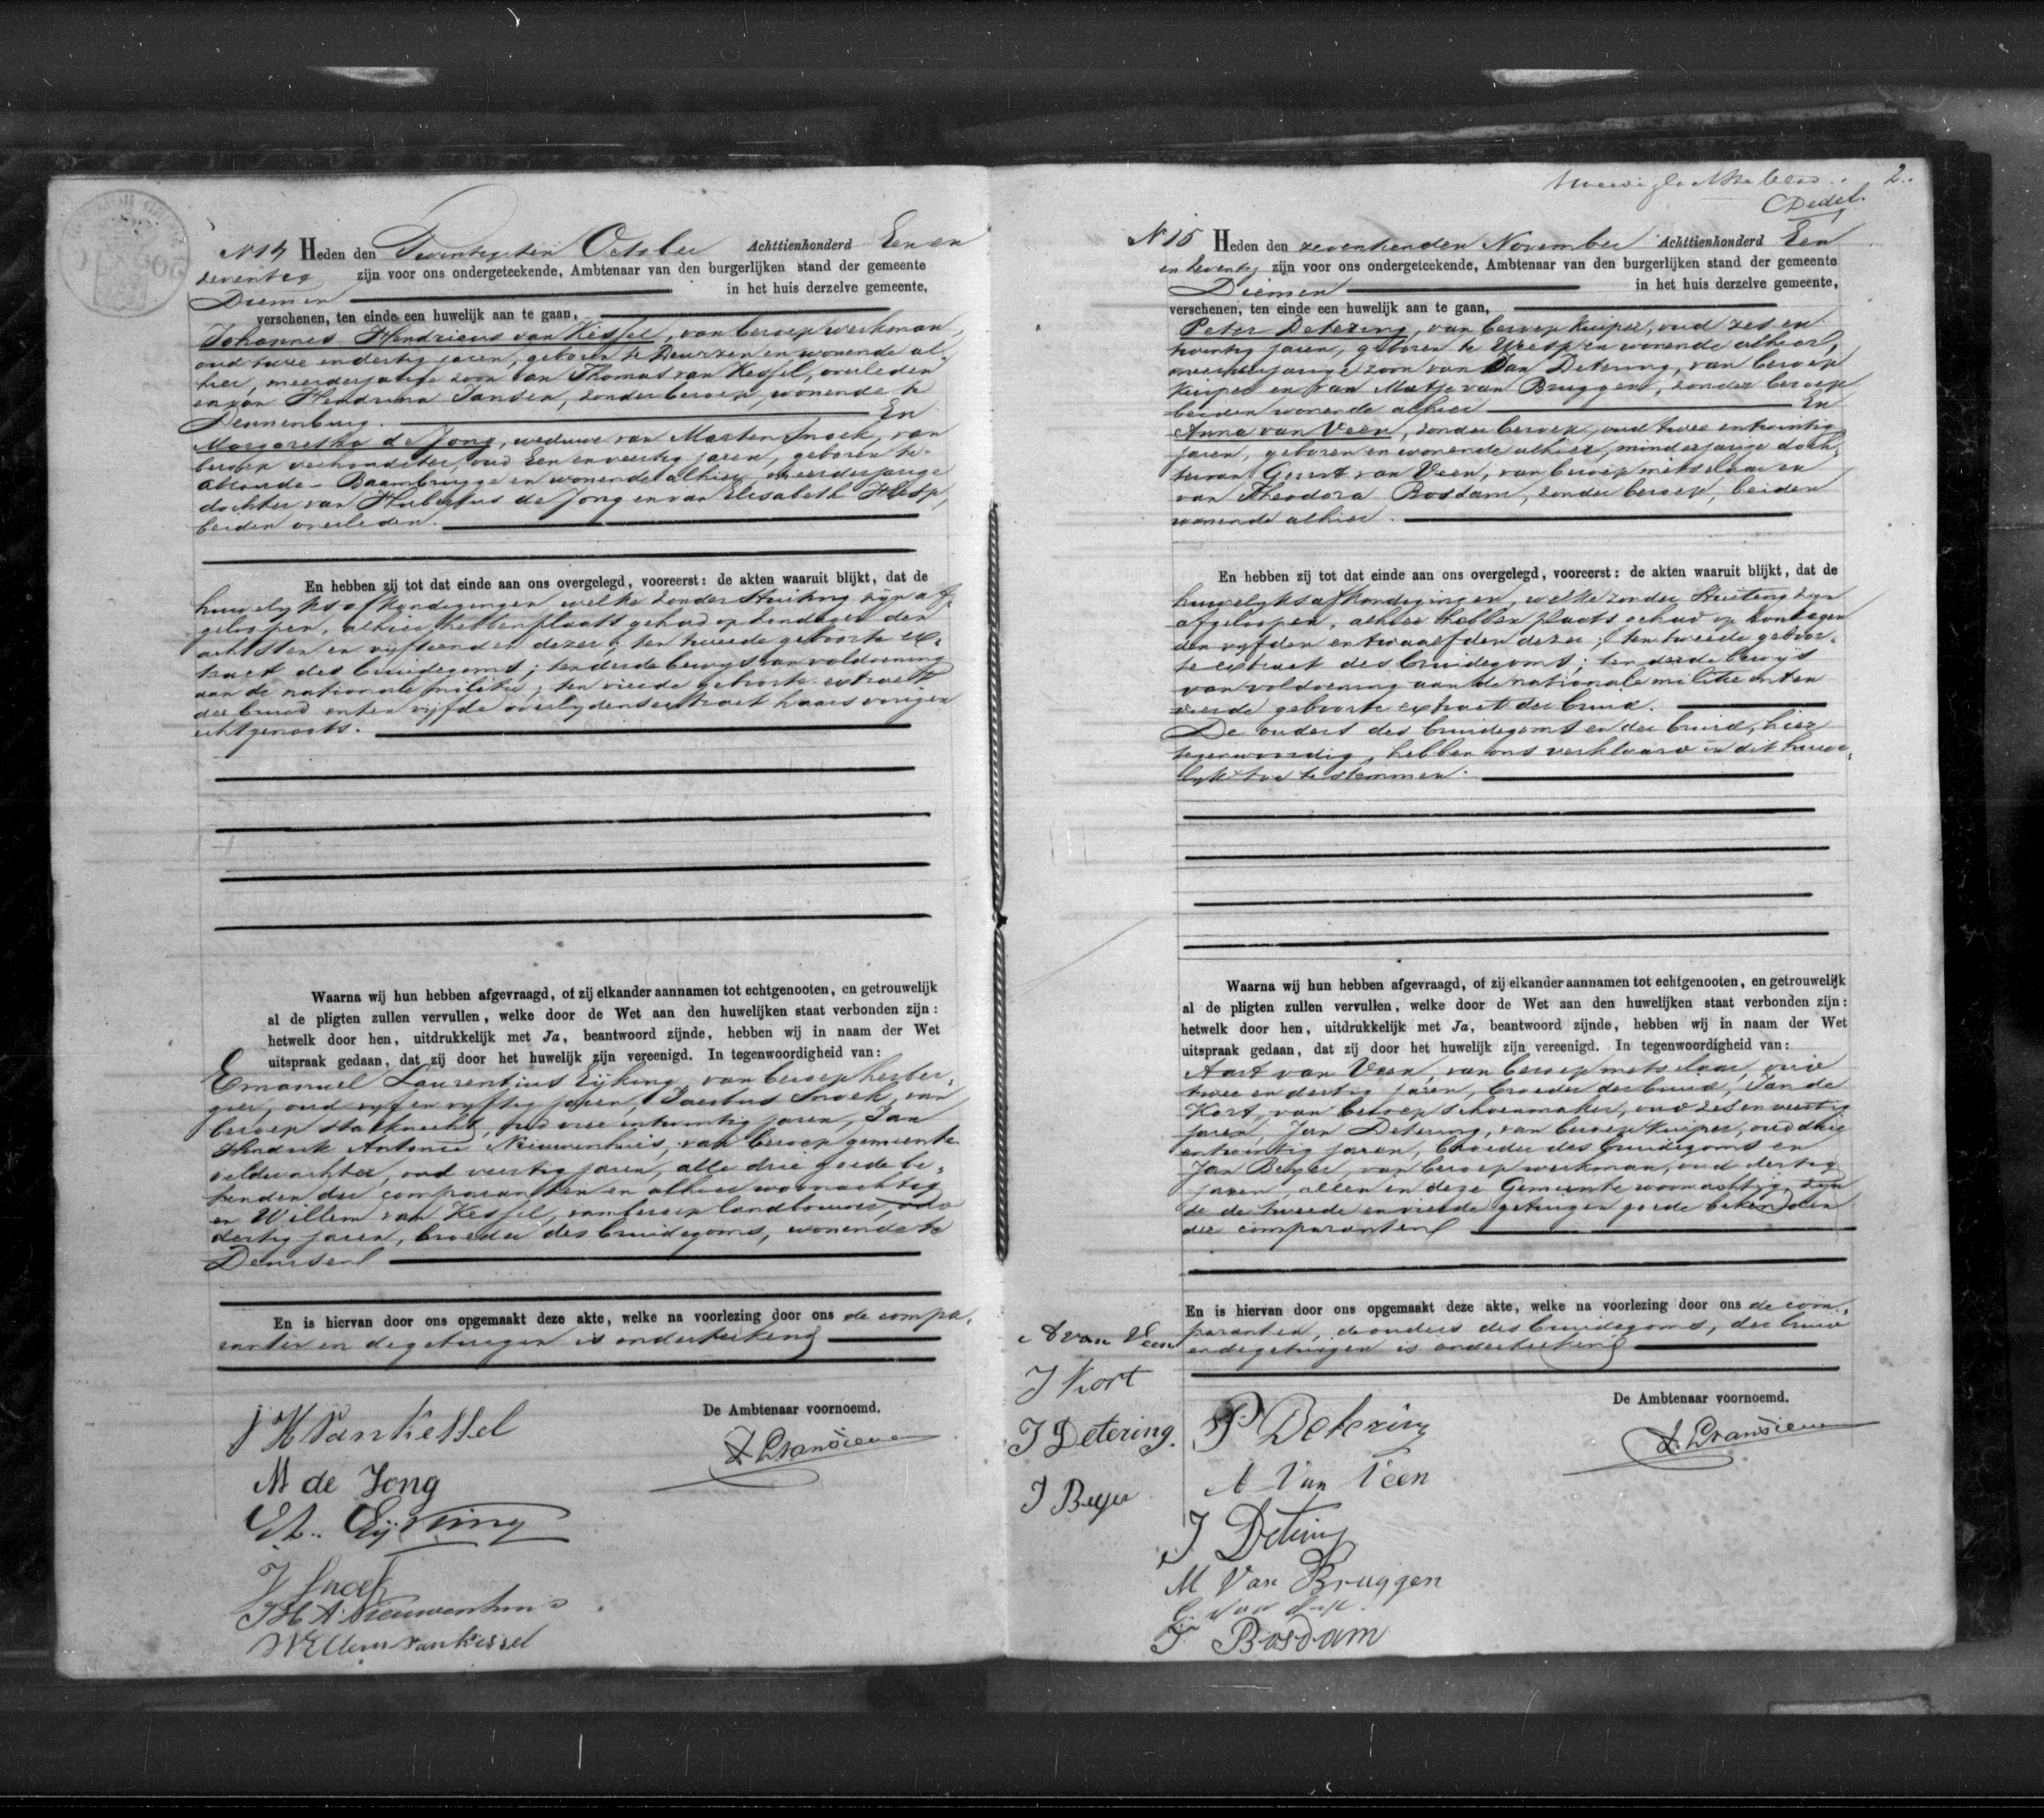 N 14 Heden den Twintigsten October Achttienhonderd Een en
zeventig zijn voor ons ondergeteekende, Ambtenaar van den burgerlijken stand der gemeente
Diemen in het huis derzelve gemeente,
verschenen, ten einde een huwelijk aan te gaan,
Johannes Hendricus van Kessel, van beroep werkman,
oud twee en dertig jaren, geboren te Deurzen en wonende al-
hier, meerderjarige zoon van Thomas van Kessel, overleden
en van Hendrina Jansen, zonder beroep, wonende te
Dennenburg. En
Margaretha de Jong, weduwe van Marten Snoek, van
beroep , oud Een en veertig jaren, geboren te
Abcoude-Baambrugge en wonende alhier, meerderjarige
dochter van Hubertus de Jong en van Elisabeth Hesp,
beiden overleden.
En hebben zij tot dat einde aan ons overgelegd, vooreerst: de akten waaruit blijkt, dat de
huwelyksafkondigingen welke zonder Stuiting zyn af-
geloopen, alhier hebben plaats gehad op Zondagen den
achtsten en vyftienden dezer; ten tweede geboorte ex-
tract des bruidegoms; ten derde bewys van voldoening
aan de nationale militie; ten vierde geboorte extract
der bruid en ten vyfde overlydens extract haars vorigen
echtgenoots.
Waarna wij hun hebben afgevraagd, of zij elkander aannamen tot echtgenooten, en getrouwelijk
al de pligten zullen vervullen, welke door de Wet aan den huwelijken staat verbonden zijn:
hetwelk door hen, uitdrukkelijk met Ja, beantwoord zijnde, hebben wij in naam der Wet
uitspraak gedaan, dat zij door het huwelijk zijn vereenigd. In tegenwoordigheid van:
Emanuel Laurentius Eijking, van beroep herber-
gier, oud vyf en vyftig jaren, Jacobus Snoek, van
beroep stalknecht, oud vier en twintig jaren, Jan
Hendrik Antonie Nieuwenhuis, van beroep gemeente
veldwachter, oud veertig jaren, alle drie goede be-
kenden der comparanten en alhier woonachtig
en Willem van Kessel, van beroep landbouwer, oud
dertig jaren, broeder des bruidegoms, wonende te
Deursen
En is hiervan door ons opgemaakt deze akte, welke na voorlezing door ons de compa-
ranten en de getuigen is onderteekend
De Ambtenaar voornoemd.
J H van Kessel
M de Jong
E L. Eijking
J Snoek
J H A Nieuwenhuis
Willem van Kessel
2.
Dedel.
N 15 Heden den zeventienden November Achttienhonderd Een
en zeventig zijn voor ons ondergeteekende, Ambtenaar van den burgerlijken stand der gemeente
Diemen in het huis derzelve gemeente,
verschenen, ten einde een huwelijk aan te gaan,
Peter Detering, van beroep Kuiper, oud zes en
twintig jaren, geboren te Weesp en wonende alhier,
meerderjarige zoon van Jan Detering, van beroep
Kuiper en van Matje van Bruggen, zonder beroep
beiden wonende alhier En
Anna van Veen, zonder beroep, oud twee en twintig
jaren, geboren en wonende alhier, minderjarige doch-
ter van Gerrit van Veen, van beroep metselaar en
van Theodora Bosdam, zonder beroep, beiden
wonende alhier.
En hebben zij tot dat einde aan ons overgelegd, vooreerst: de akten waaruit blijkt, dat de
huwelyksafkondigingen, welke zonder Stuiting zyn
afgeloopen, alhier hebben plaats gehad op Zondagen
den vyfden en twaalfden dezer; ten tweede geboor-
te extract des bruidegoms; ten derde bewys
van voldoening aan de nationale militie en ten
vierde geboorte extract der bruid.
De ouders des bruidegoms en der bruid, hier
tegenwoordig, hebben ons verklaard in dit huwe-
lyk toe te stemmen.
Waarna wij hun hebben afgevraagd, of zij elkander aannamen tot echtgenooten, en getrouwelijk
al de pligten zullen vervullen, welke door de Wet aan den huwelijken staat verbonden zijn:
hetwelk door hen, uitdrukkelijk met Ja, beantwoord zijnde, hebben wij in naam der Wet
uitspraak gedaan, dat zij door het huwelijk zijn vereenigd. In tegenwoordigheid van:
Aart van Veen, van beroep metselaar, oud
twee en dertig jaren, broeder der bruid, Jan de
Kort, van beroep schoenmaker, oud zes en veertig
jaren, Jan Detering, van beroep Kuiper, oud drie
en twintig jaren, broeder des bruidegoms en
Jan Beyer, van beroep werkman, oud dertig
jaren, allen in deze Gemeente woonachtig, zyn
de de tweede en vierde getuigen goede bekenden
der comparanten
En is hiervan door ons opgemaakt deze akte, welke na voorlezing door ons de com-
paranten, de ouders des bruidegoms, der bruid
en de getuigen is onderteekend
De Ambtenaar voornoemd.
A van Veen
J Kort
J Detering.
J Beyer
P Detering
A van Veen
J Detering
M van Bruggen
G. van Veen
T Bosdam